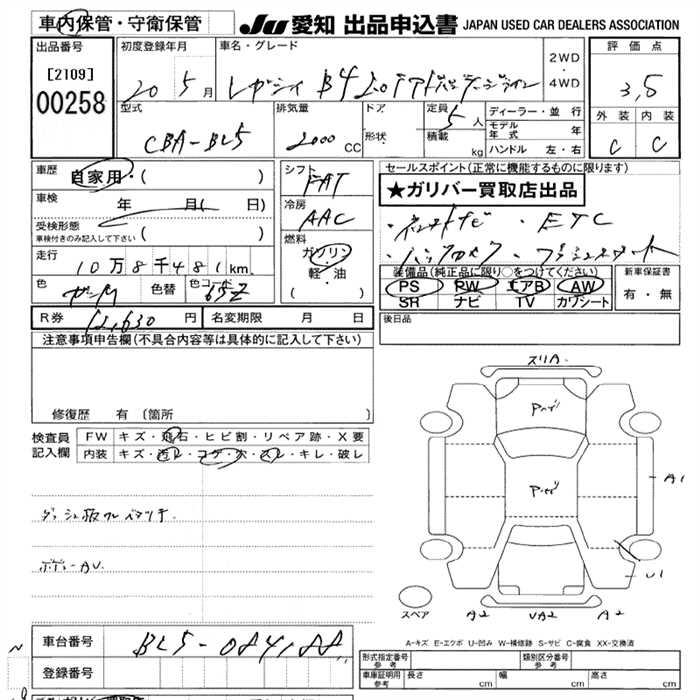 車内保管・守衛保管
JU 愛知 出品申込書 JAPAN USED CAR DEALERS ASSOCIATION
出品番号
[2109]
00258
初度登録年月
20 5月
車名・グレード
レガシィ B4 2.0
2WD
・
4WD
評価点
3,5
外装 内装
C C
型式
CBA-BL5
排気量
2000 CC
ドア
形状
定員 5人
積載 kg
ディーラー・並行
モデル年式 年
ハンドル 左・右
車歴
自家用・( )
車検 年 月( 日)
受検形態
車検付きのみ記入して下さい
走行
10万8千481km
色
色替
色コード
シフト
FAT
冷房
AAC
燃料
ガソリン
・
軽・油
( )
セールスポイント(正常に機能するものに限ります)
★ガリバー買取店出品
・ETC
装備品(純正品に限り○をつけてください)
PS PW エアB AW
SR ナビ TV カワシート
新車保証書
有・無
R券 12,630円
名変期限 月 日
後日品
注意事項申告欄(不具合内容等は具体的に記入して下さい)
修復歴 有〔箇所 〕
検査員
記入欄
FW キズ・飛石・ヒビ割・リペア跡・X要
内装 キズ・汚レ・コゲ・穴・スレ・キレ・破レ
ボデー AU
スリA
Pペゾ
Pペゾ
A1
U1
A2 UA2 A2
スペア
A-キズ E-エクボ U-凹み W-補修跡 S-サビ C-腐食 XX-交換済
車台番号
登録番号
型式指定番号
参考
類別区分番号
参考
車庫証明用
参考
長さ cm 幅 cm 高さ cm